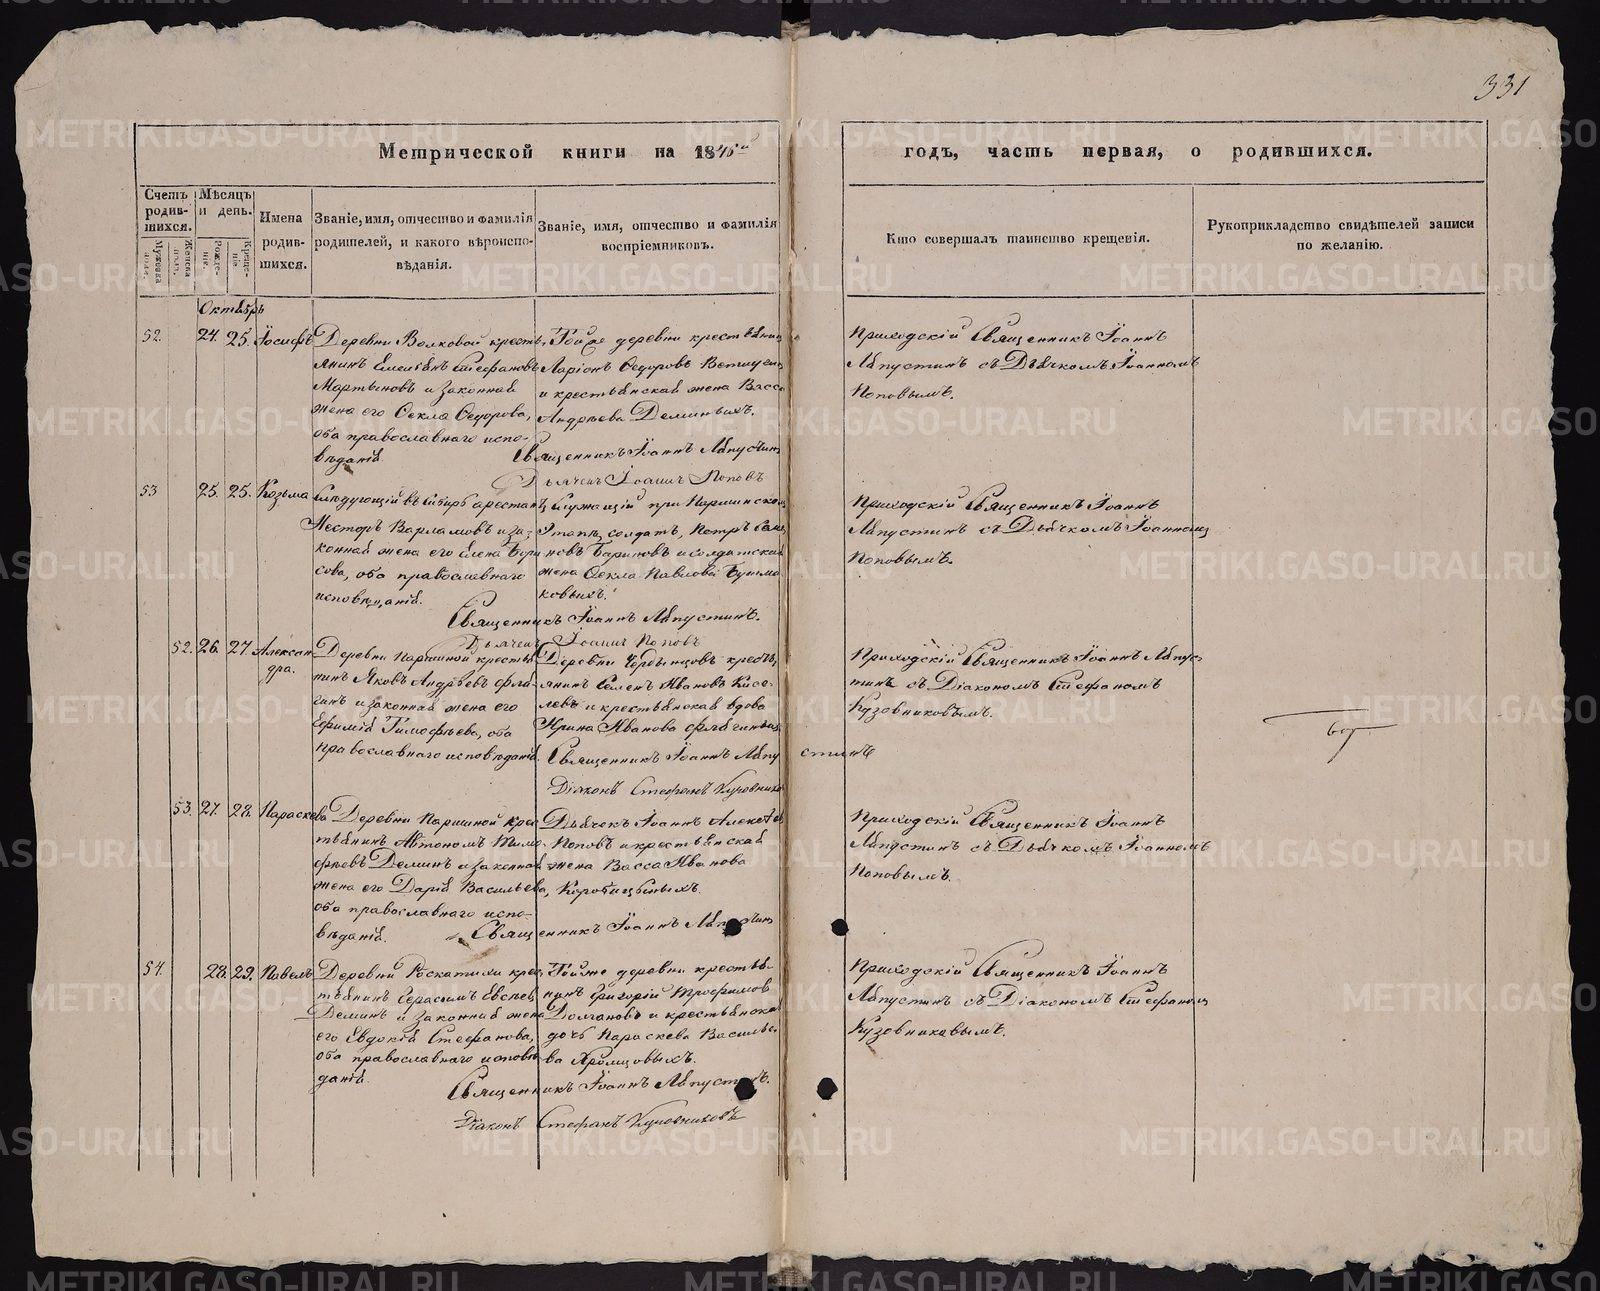 331
Метрической книги на 1845й
годъ, часть первая, о родившихся.
Счетъ родив-шихся.
Мужеска пола.
Женска пола.
Мѣсяцъ и день.
Рожде-нія.
Креще-нія
Имена родив-шихся.
Званіе, имя, отчество и фамилія
родителей, и какого вѣроиспо-
вѣданія.
Званіе, имя, отчество и фамилія
воспріемниковъ.
Кто совершалъ таинство крещенія.
Рукоприкладство свидѣтелей записи
по желанію.
Октябрь
52. 24. 25. Іосифъ
Деревни Волковой кресть
янинъ Емельянъ Стефановъ
Мартыновъ и законная
жена его Ѳекла Ѳедорова,
оба православнаго испо-
вѣданія.
Той же деревни крестьянинъ
Ларіонъ Ѳедоровъ
и крестьянская жена Васса
Андреева Деминыхъ.
Священникъ Іоаннъ Ляпустинъ
Дьячекъ Іоаннъ Поповъ
Приходскій Священникъ Іоаннъ
Ляпустинъ съ Дьячкомъ Іоанномъ
Поповымъ.
53 25. 25. Козьма
Слѣдующій въ Сибирь арестантъ
Несторъ Варламовъ и за-
конная жена его Елена Бори
сова, оба православнаго
исповѣданія.
Служащій при Паршинском
Этапѣ солдатъ, Петръ
новъ Бариновъ и солдатская
жена Ѳекла Павлова
ковыхъ.
Священникъ Іоаннъ Ляпустинъ.
Дьячекъ Іоаннъ Поповъ
Приходскій Священникъ Іоаннъ
Ляпустинъ съ Дьячкомъ Іоанномъ
Поповымъ.
52. 26. 27. Алексан
дра.
Деревни Паршиной крестья
нинъ Яковъ Андреевъ
и законная жена его
Ефимія Тимофеева, оба
православнаго исповѣданія.
Деревни кресть
янинъ Семенъ Ивановъ Кисе-
левъ и крестьянская вдова
Ирина Иванова
Священникъ Іоаннъ Ляпустинъ
Діаконъ Стефанъ Кузовников
Приходскій Священникъ Іоаннъ Ляпус
тинъ съ Діакономъ Стефаномъ
Кузовниковымъ.
53. 27. 28. Параскева
Деревни Паршиной крес
тьянинъ Автономъ Тимо
феевъ Деминъ и законная
жена его Дарія Васильева,
оба православнаго испо-
вѣданія.
Дьячекъ Іоаннъ Алексѣев
Поповъ и крестьянская
жена Васса Иванова
Коробицыныхъ.
Священникъ Іоаннъ Ляпустинъ
Приходскій Священникъ Іоаннъ
Ляпустинъ съ Дьячкомъ Іоанномъ
Поповымъ.
54. 28. 29. Павелъ
Деревни Роскатихи крес
тьянинъ Герасимъ Евсеев
Деминъ и законная жена
его Евдокія Стефанова,
оба православнаго исповѣ
данія.
Той же деревни крестья-
нинъ Григорій Трофимов
Долгановъ и крестьянская
дочь Параскева Василье-
ва
Священникъ Іоаннъ Ляпустинъ.
Діаконъ Стефанъ Кузовниковъ
Приходскій Священникъ Іоаннъ
Ляпустинъ съ Діакономъ Стефаномъ
Кузовниковымъ.
METRIKI.GASO-URAL.RU